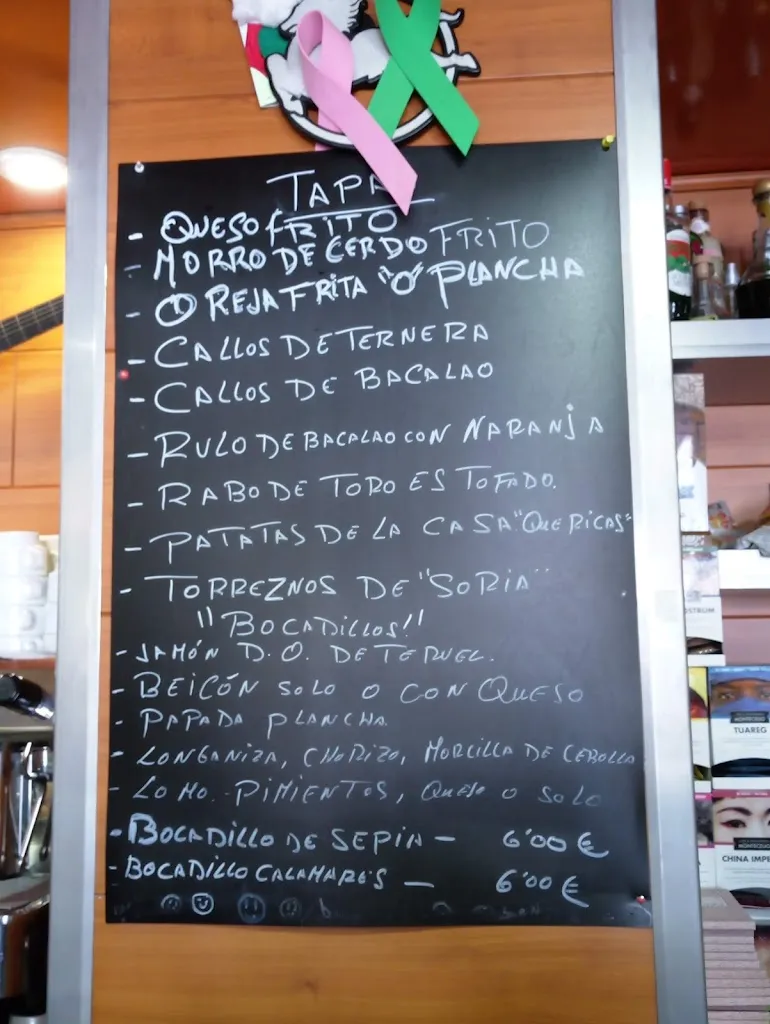 TAPA
- QUESO FRITO
- MORRO DE CERDO FRITO
- OREJA FRITA "O" PLANCHA
- CALLOS DE TERNERA
- CALLOS DE BACALAO
- RULO DE BACALAO CON NARANJA
- RABO DE TORO ESTOFADO.
- PATATAS DE LA CASA "QUE RICAS"
- TORREZNOS DE "SORIA"
"BOCADILLOS!!"
- JAMÓN D.O. DE TERUEL.
- BEICÓN SOLO O CON QUESO
- PAPADA PLANCHA
- LONGANIZA, CHORIZO, MORCILLA DE CEBOLLA
- LOMO. PIMIENTOS, QUESO O SOLO
- BOCADILLO DE SEPIA - 6'00 €
- BOCADILLO CALAMARES - 6'00 €
OSTRUM
MONTECELIO
TUAREG
MONTECELIO
CHINA IMPE